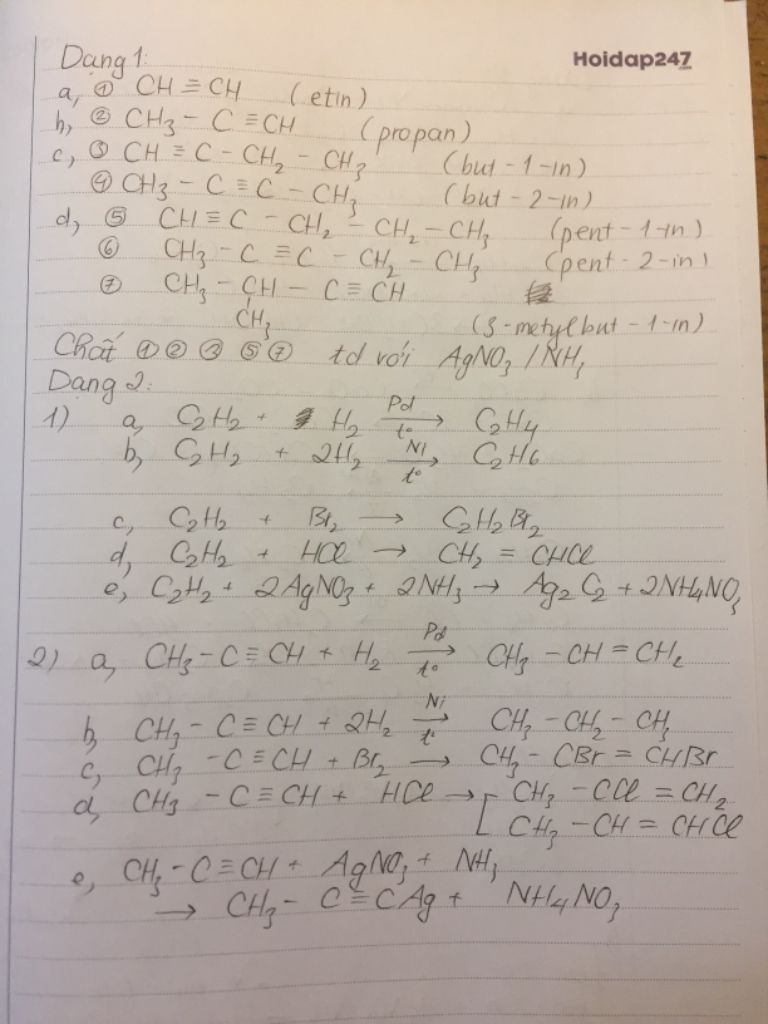 Hoidap247
Dạng 1:
a, ① CH ≡ CH (etin)
b, ② CH3 - C ≡ CH (propan)
c, ③ CH ≡ C - CH2 - CH3 (but - 1 - in)
④ CH3 - C ≡ C - CH3 (but - 2 - in)
d, ⑤ CH ≡ C - CH2 - CH2 - CH3 (pent - 1 - in)
⑥ CH3 - C ≡ C - CH2 - CH3 (pent - 2 - in)
⑦ CH3 - CH - C ≡ CH
CH3 (3-metylbut - 1 - in)
Chất ① ② ③ ⑤ ⑦ td với AgNO3 / NH3
Dạng 2:
1) a, C2H2 + H2 Pd → t° C2H4
b, C2H2 + 2H2 Ni → t° C2H6
c, C2H2 + Br2 → C2H2Br2
d, C2H2 + HCl → CH2 = CHCl
e, C2H2 + 2AgNO3 + 2NH3 → Ag2C2 + 2NH4NO3
2) a, CH3 - C ≡ CH + H2 Pd → t° CH3 - CH = CH2
b, CH3 - C ≡ CH + 2H2 Ni → t° CH3 - CH2 - CH3
c, CH3 - C ≡ CH + Br2 → CH3 - CBr = CHBr
d, CH3 - C ≡ CH + HCl → [ CH3 - CCl = CH2
CH3 - CH = CHCl
e, CH3 - C ≡ CH + AgNO3 + NH3
→ CH3 - C ≡ CAg + NH4NO3